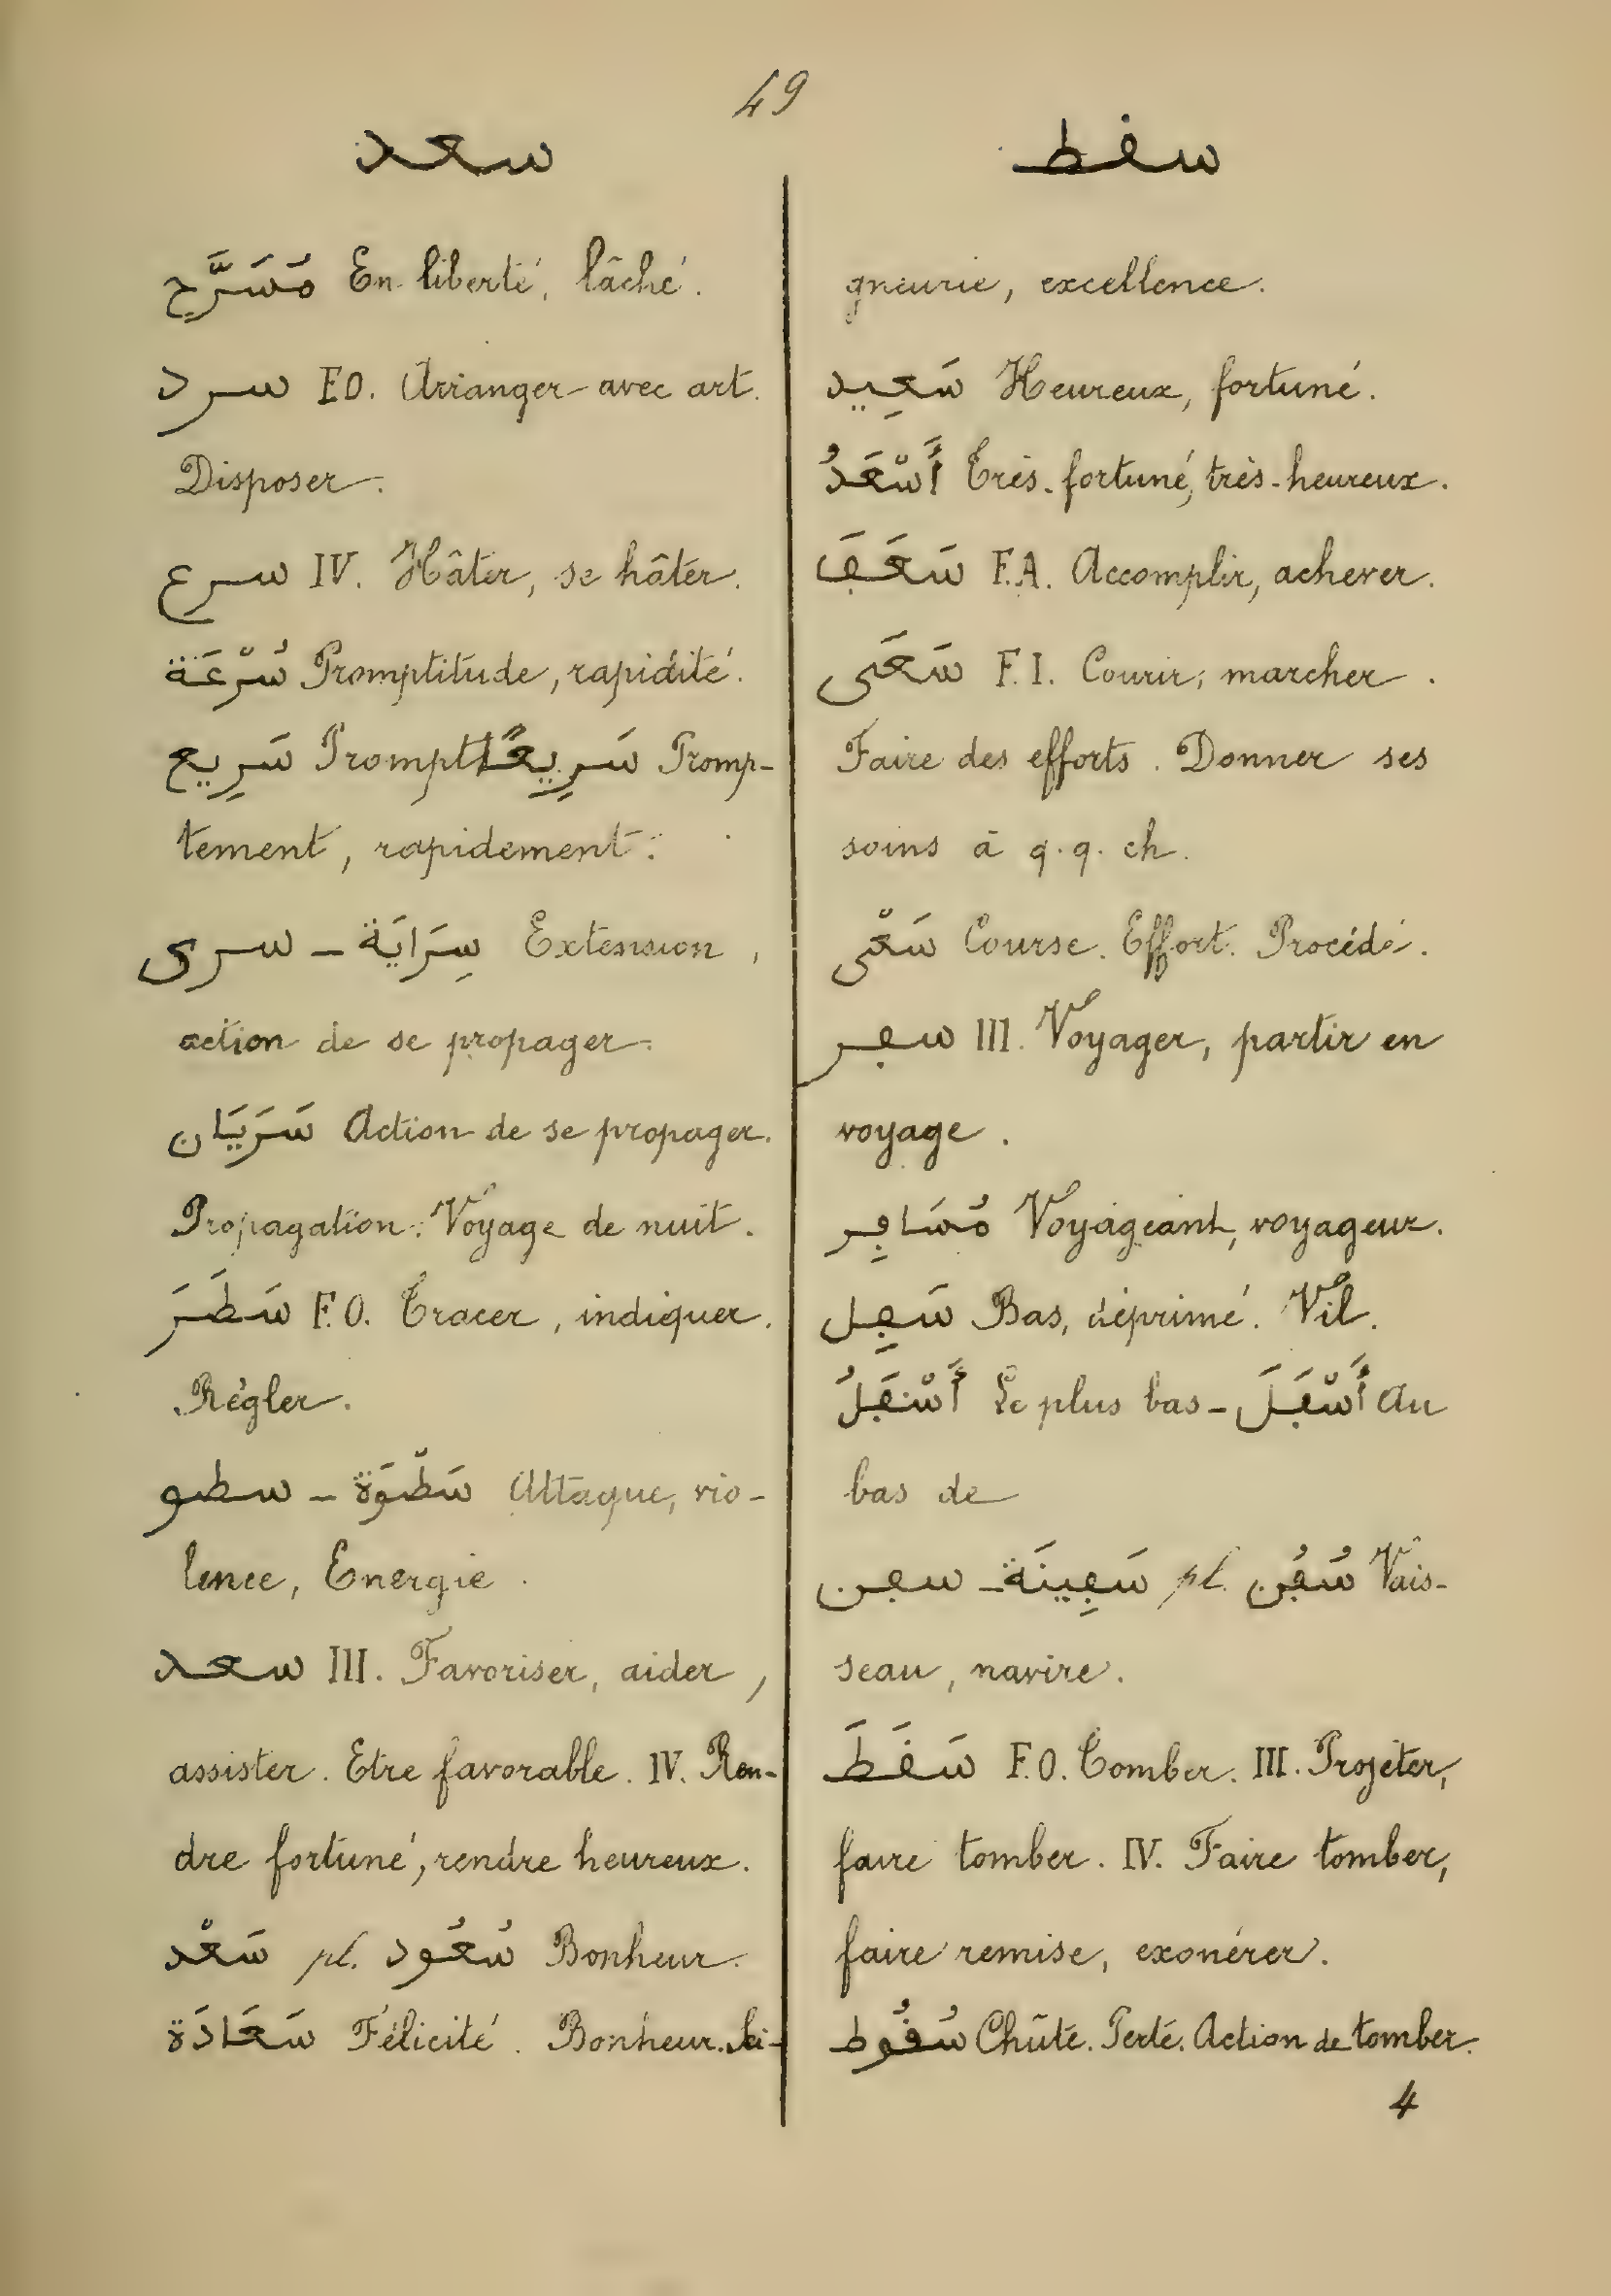 49
سعد
مُسَرَّح En liberté, lâché.
سرد F.O. Arranger avec art.
Disposer.
سرع IV. Hâter, se hâter.
سُرْعَة Promptitude, rapidité.
سَرِيع Prompt سَرِيعًا Promp-
tement, rapidement.
سرى ـ سِرَايَة Extension,
action de se propager.
سَرَيَان Action de se propager.
Propagation. Voyage de nuit.
سَطَرَ F.O. Tracer, indiquer.
Régler.
سطو ـ سَطْوَة Attaque, vio-
lence, Energie.
سعد III. Favoriser, aider,
assister. Etre favorable. IV. Ren-
dre fortuné, rendre heureux.
سَعْد pl. سُعُود Bonheur.
سَعَادَة Félicité. Bonheur. Sei-
سڧط
gneurie, excellence.
سَعِيد Heureux, fortuné.
أَسْعَدُ Très-fortuné, très-heureux.
سَعَڢَ F.A. Accomplir, achever.
سَعَى F.I. Courir, marcher.
Faire des efforts. Donner ses
soins à q.q. ch.
سَعْى Course. Effort. Procédé.
سڢر III. Voyager, partir en
voyage.
مُسَاڢِر Voyageant, voyageur.
سَڢِل Bas, déprimé. Vil.
أَسْڢَلُ Le plus bas - أَسْڢَلَ Au
bas de
سڢن ـ سَڢِينَة pl. سُڢُن Vais-
seau, navire.
سَڧَطَ F.O. Tomber. III. Projeter,
faire tomber. IV. Faire tomber,
faire remise, exonérer.
سُڧُوط Chûte. Perte. Action de tomber.
4